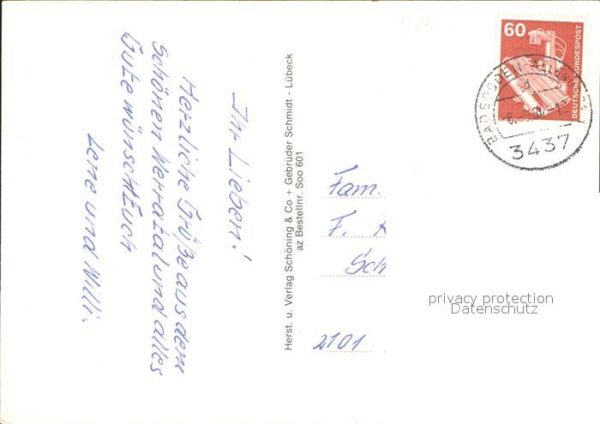 Ihr Lieben!
Herzliche Grüße aus dem
schönen Werratal und alles
Gute wünscht Euch
Lene und Willi.
Herst. u. Verlag Schöning & Co + Gebrüder Schmidt - Lübeck
az Bestellnr. Soo 601
60
DEUTSCHE BUNDESPOST
BAD SOODEN-ALLENDORF
3437
Fam.
F.
Sch
2101
privacy protection
Datenschutz